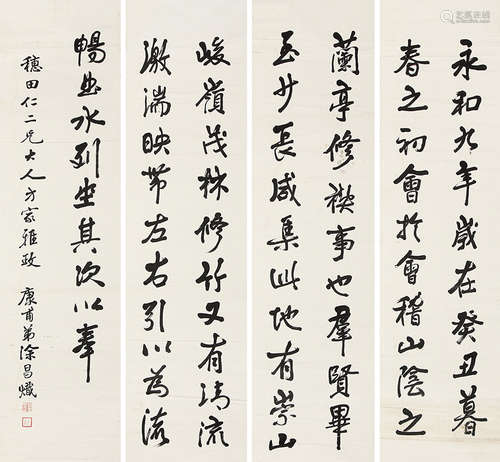 永和九年歲在癸丑暮
春之初會於會稽山陰之
蘭亭修禊事也羣賢畢
至少長咸集此地有崇山
峻嶺茂林修竹又有清流
激湍映帶左右引以為流
暢曲水列坐其次以奉
穗田仁二兄大人方家雅政 康甫弟涂昌熾